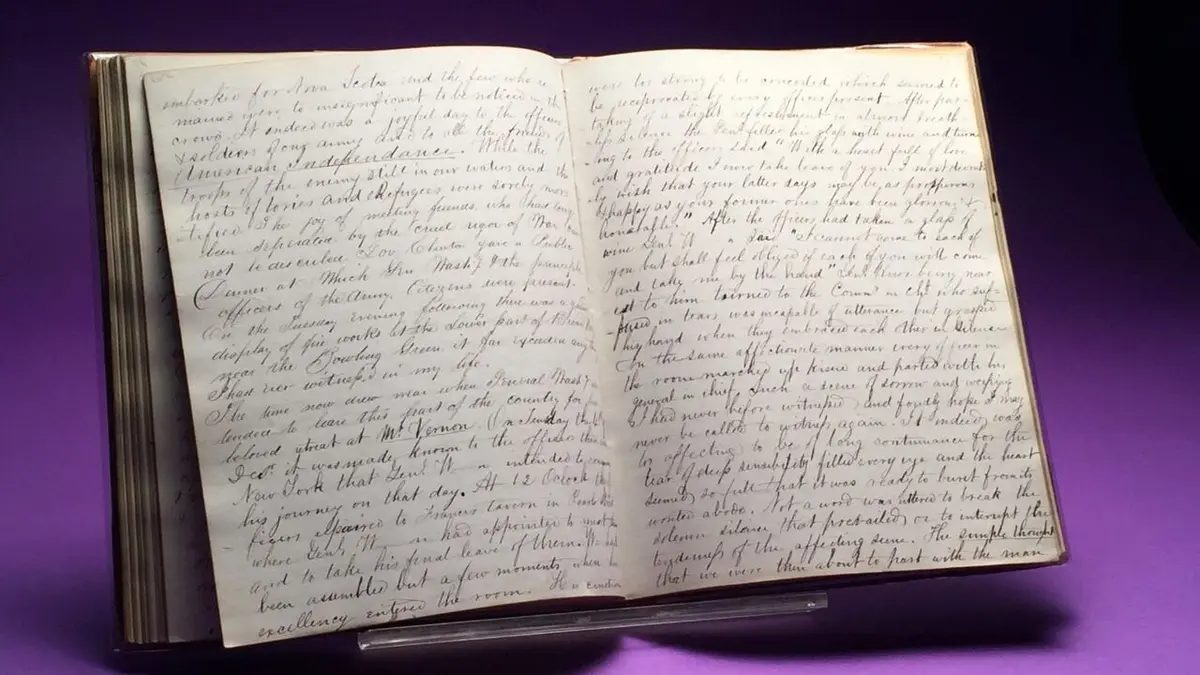 embarked for Nova Scotia and the few who re
mained were to insignificant to be noticed in the
crowd. It indeed was a joyful day to the officers
& soldiers of our army and to all the friends of
American Independance. While the
troops of the enemy still in our waters and the
hosts of tories and Refugees were sorely mor
tified. The joy of meeting friends, who had long
been seperated by the cruel rigor of War can
not be described. Gov. Clinton gave a Public
Dinner at Which Gen Washⁿ & the principle
officers of the Army. Citizens were present
On the Tuesday Evening following there was a grand
display of fire works at the Lower part of
near the Bowling Green it far exceeded any thing
I had ever witnessed in my life.
The time now drew near when General Washⁿ in
tended to leave this part of the country for
beloved retreat at Mt Vernon. On Tuesday the
Decr. it was made known to the officers then in
New York that Genl. W n intended to
his journey on that day. At 12 Oclock the
ficers repaired to Frances tavern in Pearl Street
where Genl. W n had appointed to meet them
and to take his final leave of them. We had
been assembled but a few moments, when his
excellency entered the room. His emotion
were too strong to be concealed which seemed to
be reciprocated by every officer present. After par-
taking of a slight refreshment in almost breath-
less silence the Genl filled his glass with wine and turn
ing to the officers said "With a heart full of love
and gratitude I now take leave of you. I most devout
ly wish that your latter days may be as prosperous
& happy as your former ones have been glorious &
honorable." After the officers had taken a glass of
wine Genl W n said "I cannot come to each of
you but shall feel obliged if each of you will come
and take me by the hand" Genl Knox being near
est to him turned to the Commr in chf. who suf-
fused in tears was incapable of utterance but grasped
his hand when they embraced each other in silence
In the same affectionate manner every officer in
the room marched up kissed and parted with his
general in chief. Such a scene of sorrow and weeping
I had never before witnessed and fondly hope I may
never be called to witness again. It indeed was
too affecting to be of long continuance for the
tear of deep sensibility filled every eye and the heart
seemed so full that it was ready to burst from its
wonted abode. Not a word was uttered to break the
solemn silence that prevailed or to interrupt the
tenderness of the affecting scene. The simple thought
that we were then about to part with the man